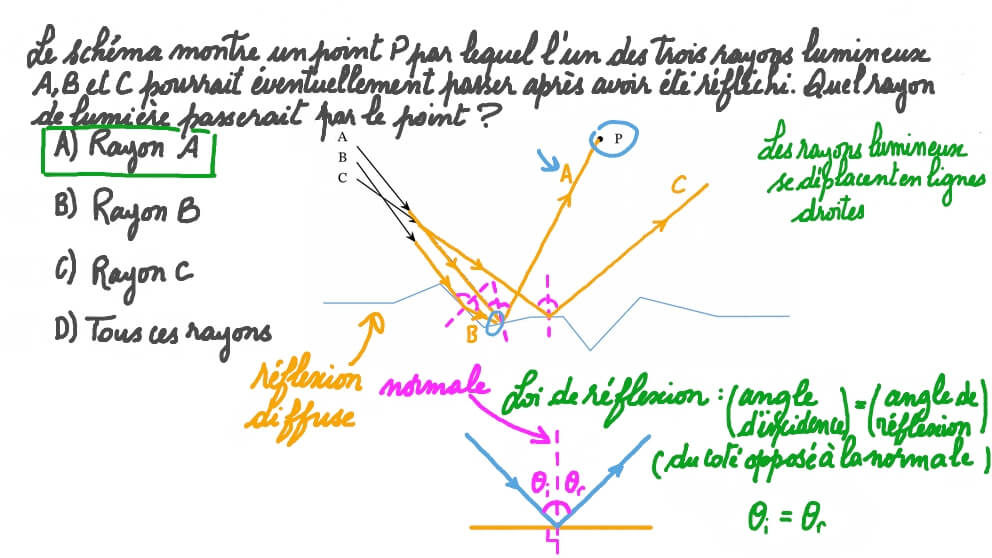 Le schéma montre un point P par lequel l'un des trois rayons lumineux
A, B et C pourrait éventuellement passer après avoir été réfléchi. Quel rayon
de lumière passerait par le point ?
A) Rayon A
B) Rayon B
C) Rayon C
D) Tous ces rayons
A
B
C
P
A
C
B
Les rayons lumineux
se déplacent en lignes
droites
réflexion
diffuse
normale
Loi de réflexion : (angle d'incidence) = (angle de réflexion)
(du coté opposé à la normale)
θi θr
θi = θr